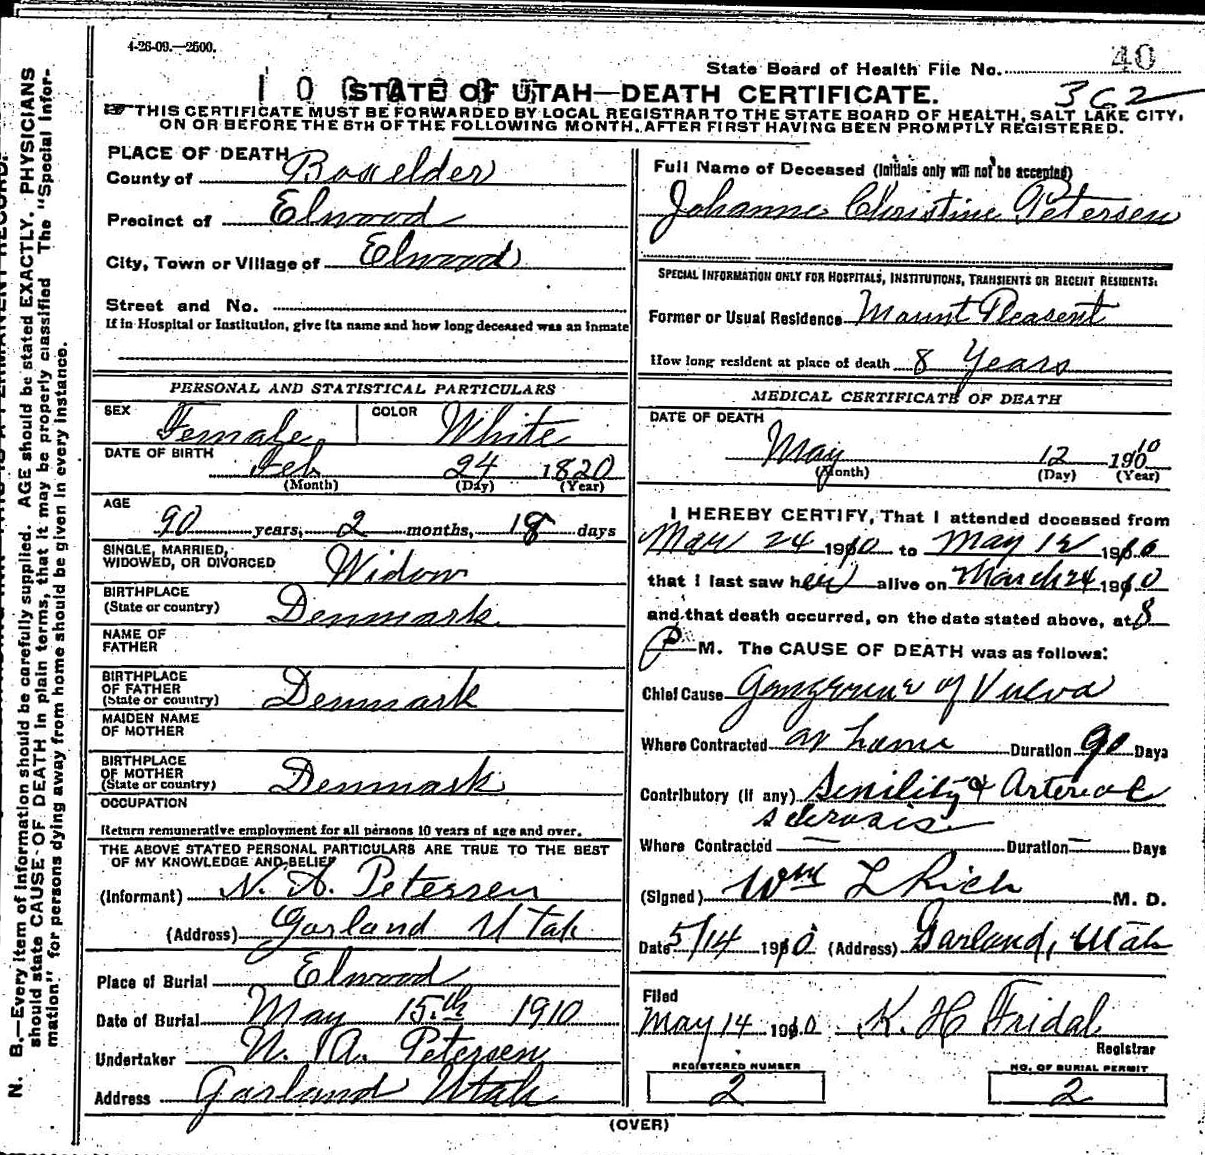 4-26-09.—2500.
State Board of Health File No. 40
STATE OF UTAH—DEATH CERTIFICATE. 362
THIS CERTIFICATE MUST BE FORWARDED BY LOCAL REGISTRAR TO THE STATE BOARD OF HEALTH, SALT LAKE CITY,
ON OR BEFORE THE 5TH OF THE FOLLOWING MONTH, AFTER FIRST HAVING BEEN PROMPTLY REGISTERED.
PLACE OF DEATH
County of Boxelder
Precinct of Elwood
City, Town or Village of Elwood
Street and No.
If in Hospital or Institution, give its name and how long deceased was an inmate
PERSONAL AND STATISTICAL PARTICULARS
SEX Female COLOR White
DATE OF BIRTH Feb 24 1820
(Month) (Day) (Year)
AGE
90 years, 2 months, 18 days
SINGLE, MARRIED,
WIDOWED, OR DIVORCED Widow
BIRTHPLACE
(State or country) Denmark
NAME OF
FATHER
BIRTHPLACE
OF FATHER
(State or country) Denmark
MAIDEN NAME
OF MOTHER
BIRTHPLACE
OF MOTHER
(State or country) Denmark
OCCUPATION
Return remunerative employment for all persons 10 years of age and over.
THE ABOVE STATED PERSONAL PARTICULARS ARE TRUE TO THE BEST
OF MY KNOWLEDGE AND BELIEF
(Informant) N. A. Petersen
(Address) Garland Utah
Place of Burial Elwood
Date of Burial May 15th 1910
Undertaker N. A. Petersen
Address Garland Utah
Full Name of Deceased (Initials only will not be accepted)
Johanne Christine Petersen
SPECIAL INFORMATION ONLY FOR HOSPITALS, INSTITUTIONS, TRANSIENTS OR RECENT RESIDENTS:
Former or Usual Residence Mount Pleasent
How long resident at place of death 8 Years
MEDICAL CERTIFICATE OF DEATH
DATE OF DEATH
May 12 1910
(Month) (Day) (Year)
I HEREBY CERTIFY, That I attended deceased from
Mar 24 1910 to May 12 1910
that I last saw her alive on March 24 1910
and that death occurred, on the date stated above, at 8
P M. The CAUSE OF DEATH was as follows:
Chief Cause Gangrene of Vulva
Where Contracted at home Duration 90 Days
Contributory (if any) Senility & Arterial
sclerosis
Where Contracted — Duration — Days
(Signed) Wm L Rich M. D.
Date 5/14 1910 (Address) Garland, Utah
Filed
May 14 1910 K. H. Fridal
Registrar
REGISTERED NUMBER
2
NO. OF BURIAL PERMIT
2
(OVER)
N. B.—Every item of information should be carefully supplied. AGE should be stated EXACTLY. PHYSICIANS
should state CAUSE OF DEATH in plain terms, that it may be properly classified. The "Special Infor-
mation" for persons dying away from home should be given in every instance.